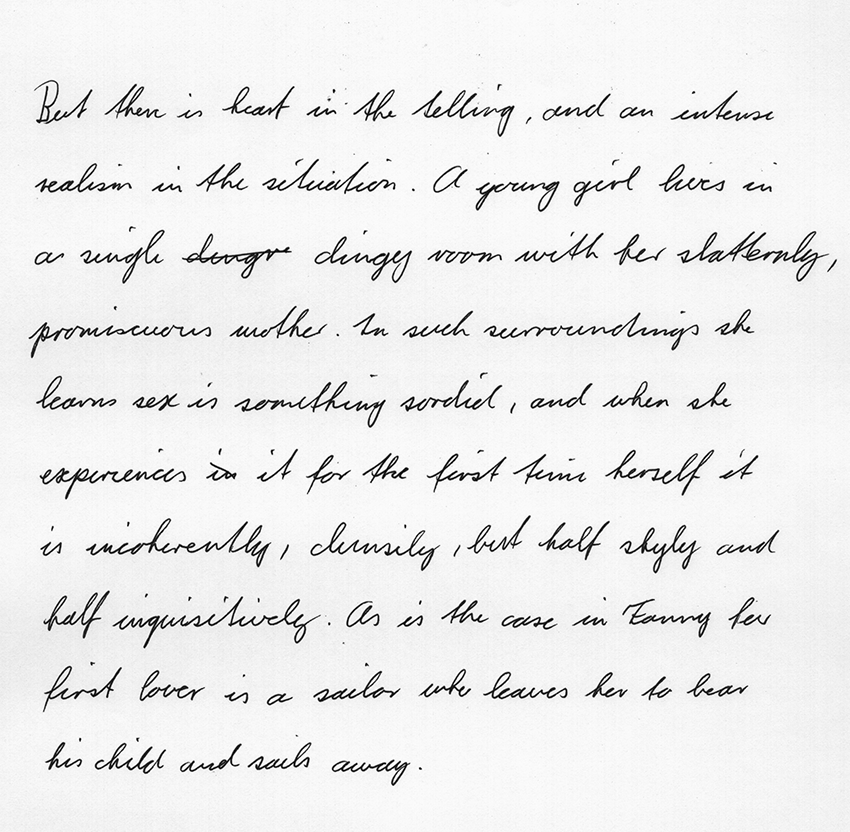 But there is heart in the telling, and an intense
realism in the situation. A young girl lives in
a single dingy dingey room with her slatternly,
promiscuous mother. In such surroundings she
learns sex is something sordid, and when she
experiences in it for the first time herself it
is incoherently, clumsily, but half shyly and
half inquisitively. As is the case in Fanny her
first lover is a sailor who leaves her to bear
his child and sails away.